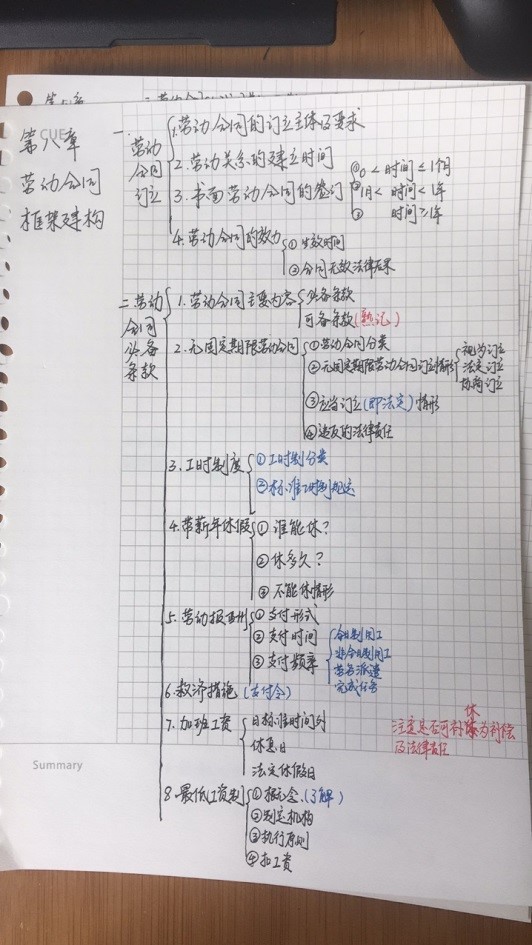 CUE
第八章
劳动合同
框架建构
一.劳动合同订立
1.劳动合同的订立主体及要求
2.劳动关系的建立时间
3.书面劳动合同的签订
①0<时间≤1个月
②1月<时间<1年
③时间≥1年
4.劳动合同的效力
①生效时间
②合同无效法律后果
二.劳动合同必备条款
1.劳动合同主要内容
必备条款
可备条款(熟记)
2.无固定期限劳动合同
①劳动合同分类
②无固定期限劳动合同订立情形
视为订立
法定订立
协商订立
③应当订立(即法定)情形
④违反的法律责任
3.工时制度
①工时制分类
②标准工时制规定
4.带薪年休假
①谁能休?
②休多久?
③不能休情形
5.劳动报酬
①支付形式
②支付时间
③支付频率
全日制用工
非全日制用工
劳务派遣
完成任务
6.救济措施(支付令)
7.加班工资
日标准时间外
休息日
法定休假日
注意是否可补休为补偿
及法律责任
8.最低工资制
①概念(了解)
②制定机构
③执行原则
④扣工资
Summary